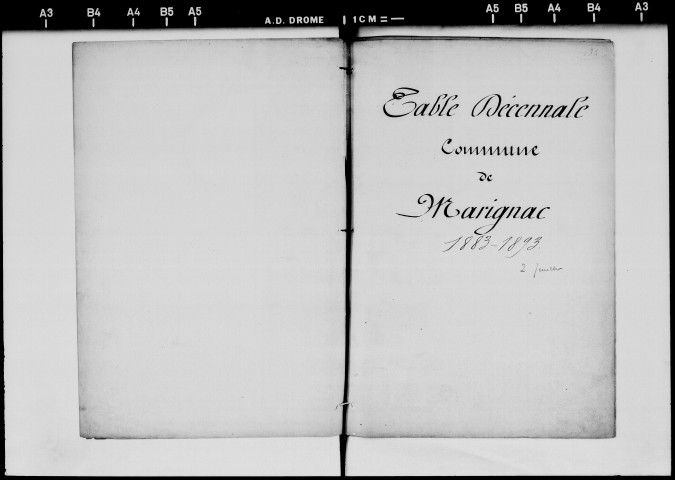 A3 B4 A4 B5 A5 A.D. DROME 1CM = A5 B5 A4 B4 A3
Table Décennale
Commune
de
Marignac
1883-1893
2